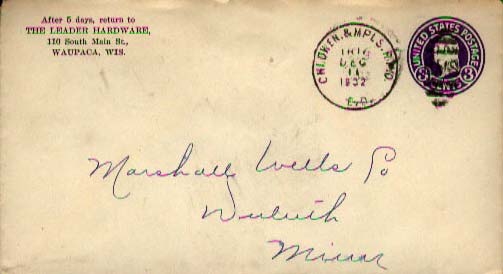 After 5 days, return to
THE LEADER HARDWARE,
110 South Main St.,
WAUPACA, WIS.
CHI, &MPLS. R.P.O.
TR16
DEC
11
1932
UNITED STATES POSTAGE
3 CENTS 3
Marshall Wells Co
Duluth
Minn